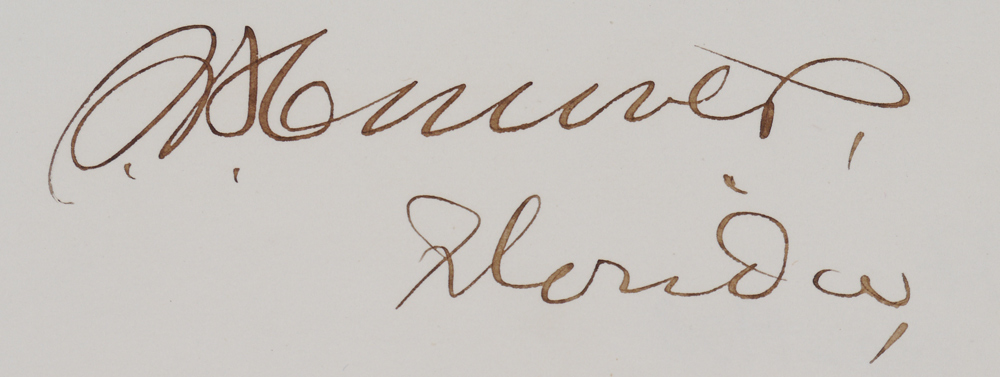 S. B. Conover,
Florida,